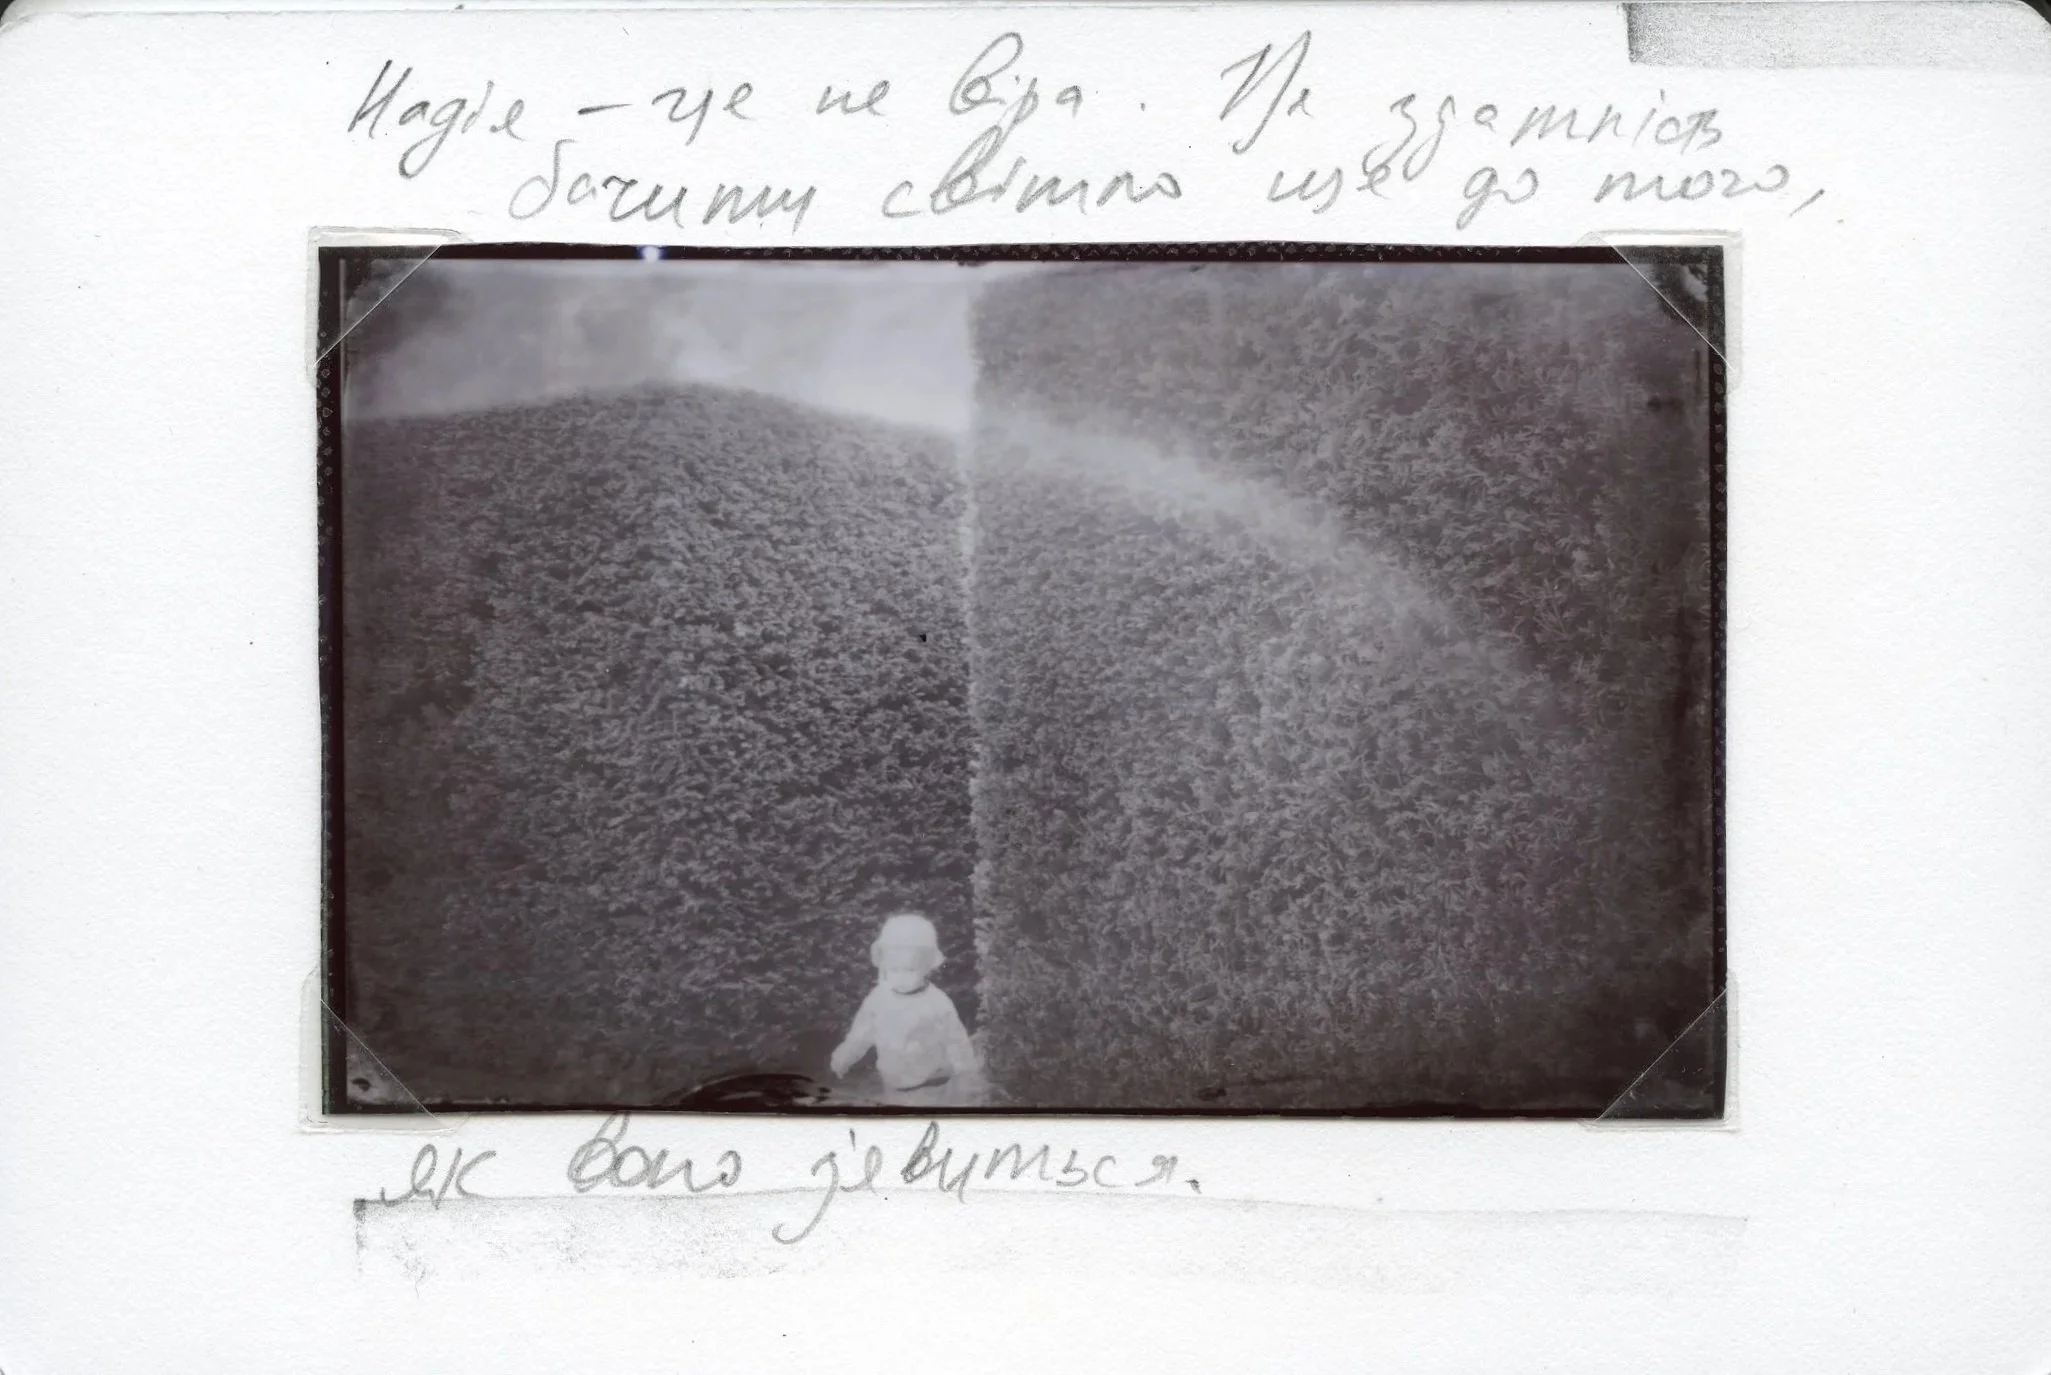 Надія – це не віра. Це здатність
бачити світло ще до того,
як воно з'явиться.